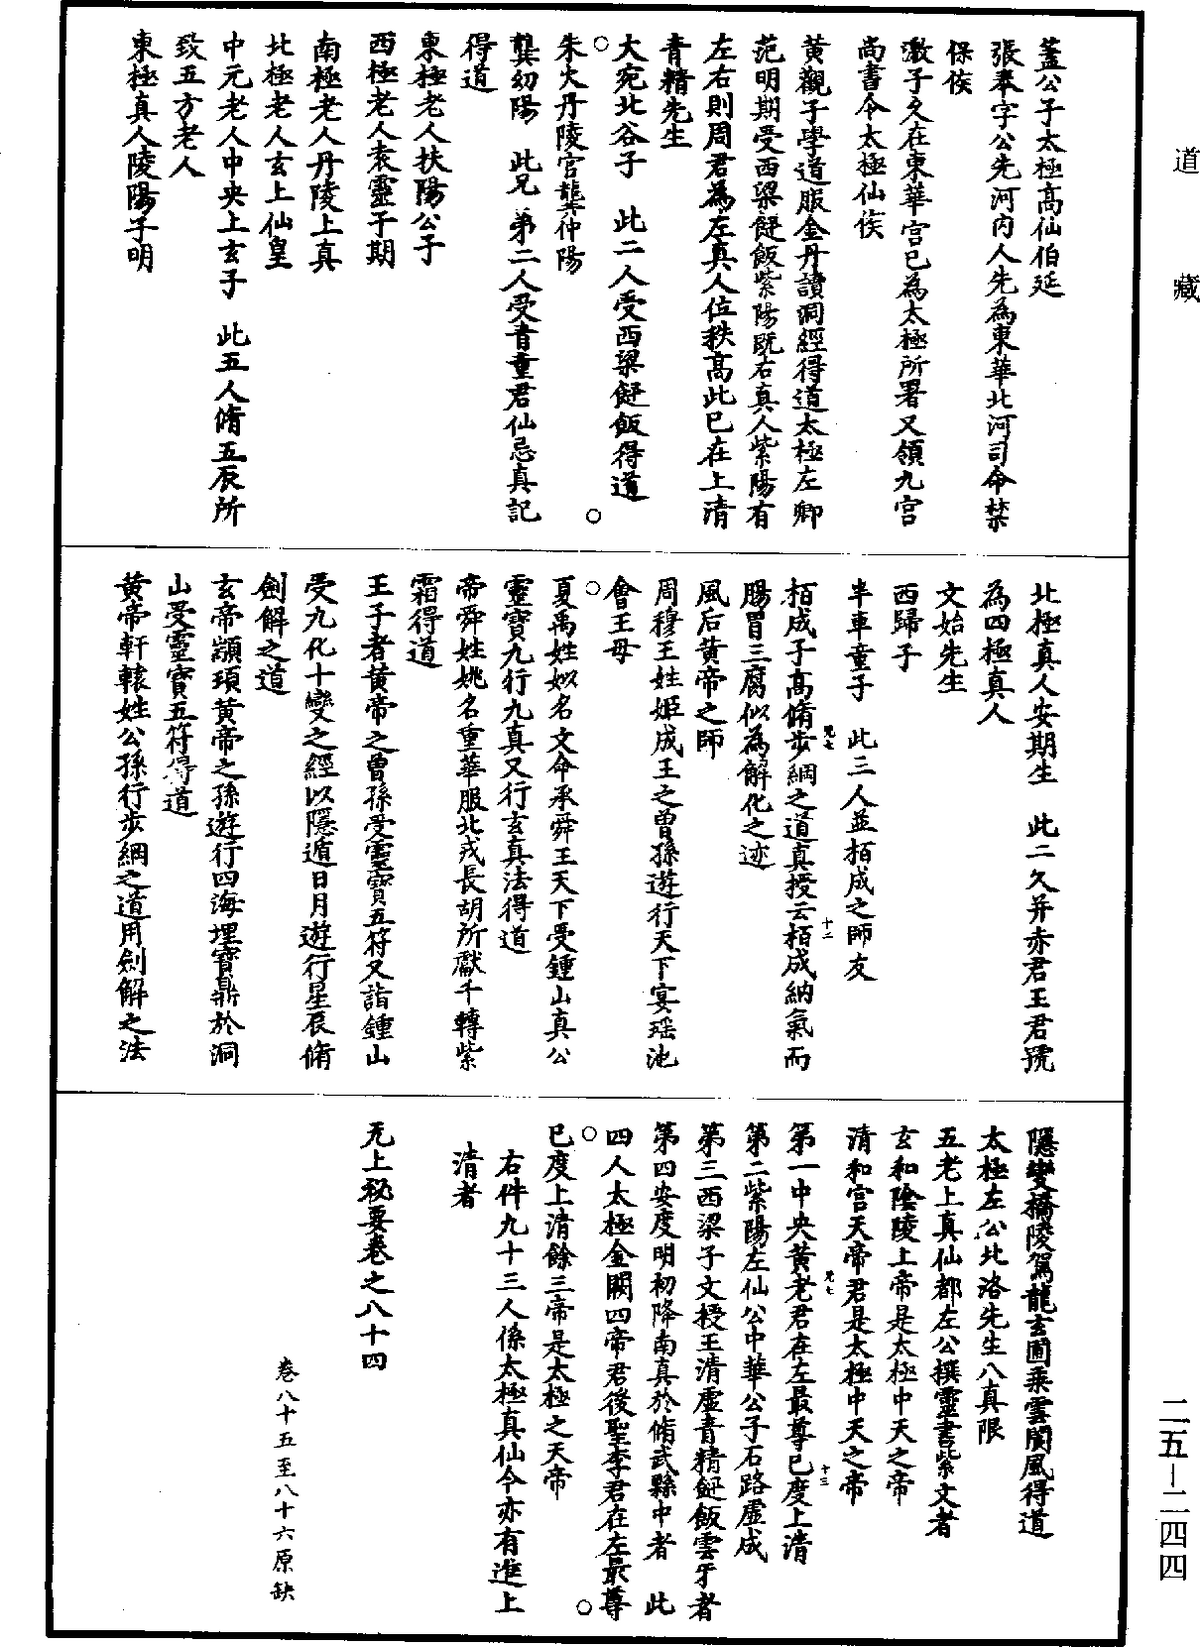 道藏
蓋公子太極高仙伯延
張奉字公先河內人先為東華北河司命禁
保侯
激子久在東華宮已為太極所署又領九宮
尚書令太極仙侯
黃觀子學道服金丹讀洞經得道太極左卿
范明期受西梁䭀飯紫陽既右真人紫陽有
左右則周君為左真人位秩高此已在上清
青精先生
大宛北谷子　此二人受西梁䭀飯得道
朱火丹陵宮龔仲陽
龔幼陽　此兄弟二人受青童君仙忌真記
得道
東極老人扶陽公子
西極老人袁靈子期
南極老人丹陵上真
北極老人玄上仙皇
中元老人中央上玄子　此五人脩五辰所
致五方老人
東極真人陵陽子明
北極真人安期生　此二久并赤君王君號
為四極真人
文始先生
西歸子
羊車童子　此三人並栢成之師友
栢成子高脩步綱之道真授云栢成納氣而
腸胃三腐似為解化之迹
風后黃帝之師
周穆王姓姬成王之曾孫遊行天下宴瑶池
會王母
夏禹姓姒名文命承舜王天下受鍾山真公
靈寶九行九真又行玄真法得道
帝舜姓姚名重華服北戎長胡所獻千轉紫
霜得道
王子者黃帝之曾孫受靈寶五符又詣鍾山
受九化十變之經以隱遁日月遊行星辰脩
劍解之道
玄帝顓頊黃帝之孫遊行四海埋寶鼎於洞
山受靈寶五符得道
黃帝軒轅姓公孫行步綱之道用劍解之法
隱變橋陵駕龍玄圃乘雲閬風得道
太極左公北洛先生八真限
五老上真仙都左公撰靈書紫文者
玄和陰陵上帝是太極中天之帝
清和宮天帝君是太極中天之帝
第一中央黃老君在左最尊已度上清
第二紫陽左仙公中華公子石路虛成
第三西梁子文授王清虛青精䭀飯雲牙者
第四安度明初降南真於脩武縣中者　此
四人太極金闕四帝君後聖李君在左最尊
已度上清餘三帝是太極之天帝
右件九十三人係太極真仙今亦有進上
清者
无上秘要卷之八十四
卷八十五至八十六原缺
二五—二四四